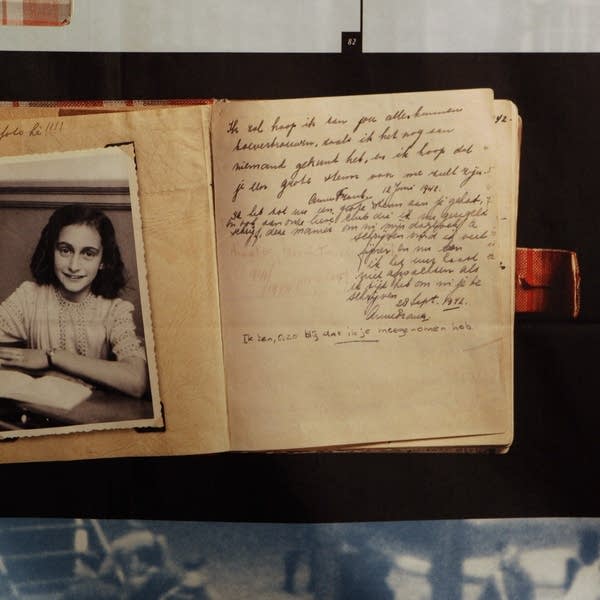 82
foto hè!!!!
42.
Ik zal hoop ik aan jou alles kunnen
toevertrouwen, zoals ik het nog aan
niemand gekund heb, en ik hoop dat
je een grote steun voor me zult zijn.
Anne Frank. 12 Juni 1942.
Ik heb tot nu een grote steun aan je gehad,
en ook aan onze lieve club die ik nu geregeld
schrijf, deze manier om in mijn dagboek te
schrijven vind ik veel
fijner en nu kan
ik het uur haast
niet afwachten als
ik tijd heb om in je te
schrijven.
28 Sept. 1942.
Anne Frank.
Ik ben, o, zo blij dat ik je meegenomen heb.